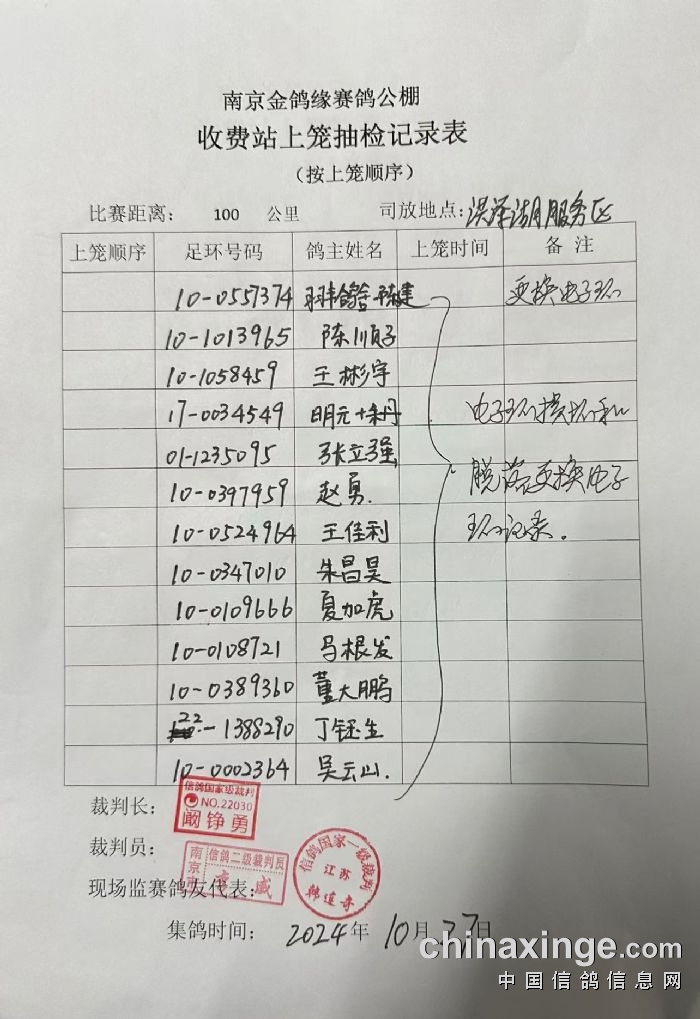 南京金鸽缘赛鸽公棚
收费站上笼抽检记录表
（按上笼顺序）
比赛距离： 100 公里 司放地点：洪泽湖服务区
上笼顺序 足环号码 鸽主姓名 上笼时间 备 注
10-0557374 鸽舍 陈建 更换电子环
10-1013965 陈顺子
10-1058459 王彬宇
17-0034549 明元 电子环损坏和
01-1235095 张立强
10-0397959 赵勇. 脱落更换电子
10-0524964 王佳利 环记录.
10-0347010 朱昌昊
10-0109666 夏加虎
10-0108721 马根发
10-0389360 董大鹏
22-1388290 丁钰生
10-0002364 吴云山.
裁判长：
信鸽国家级裁判
NO.22030
阚铮勇
裁判员：
南京市 信鸽二级裁判员
信鸽国家一级裁判
江苏
现场监赛鸽友代表：
集鸽时间： 2024年 10月 27日
chinaxinge.com
中国信鸽信息网